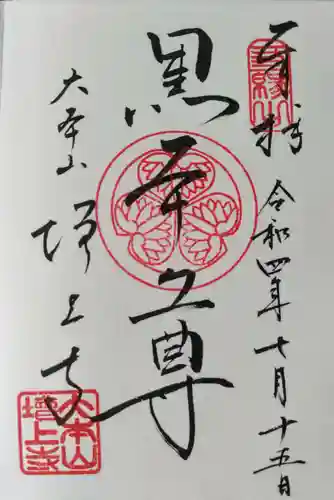 奉拝 令和四年十月十五日
黒本尊
大本山 増上寺
大本山
増上寺